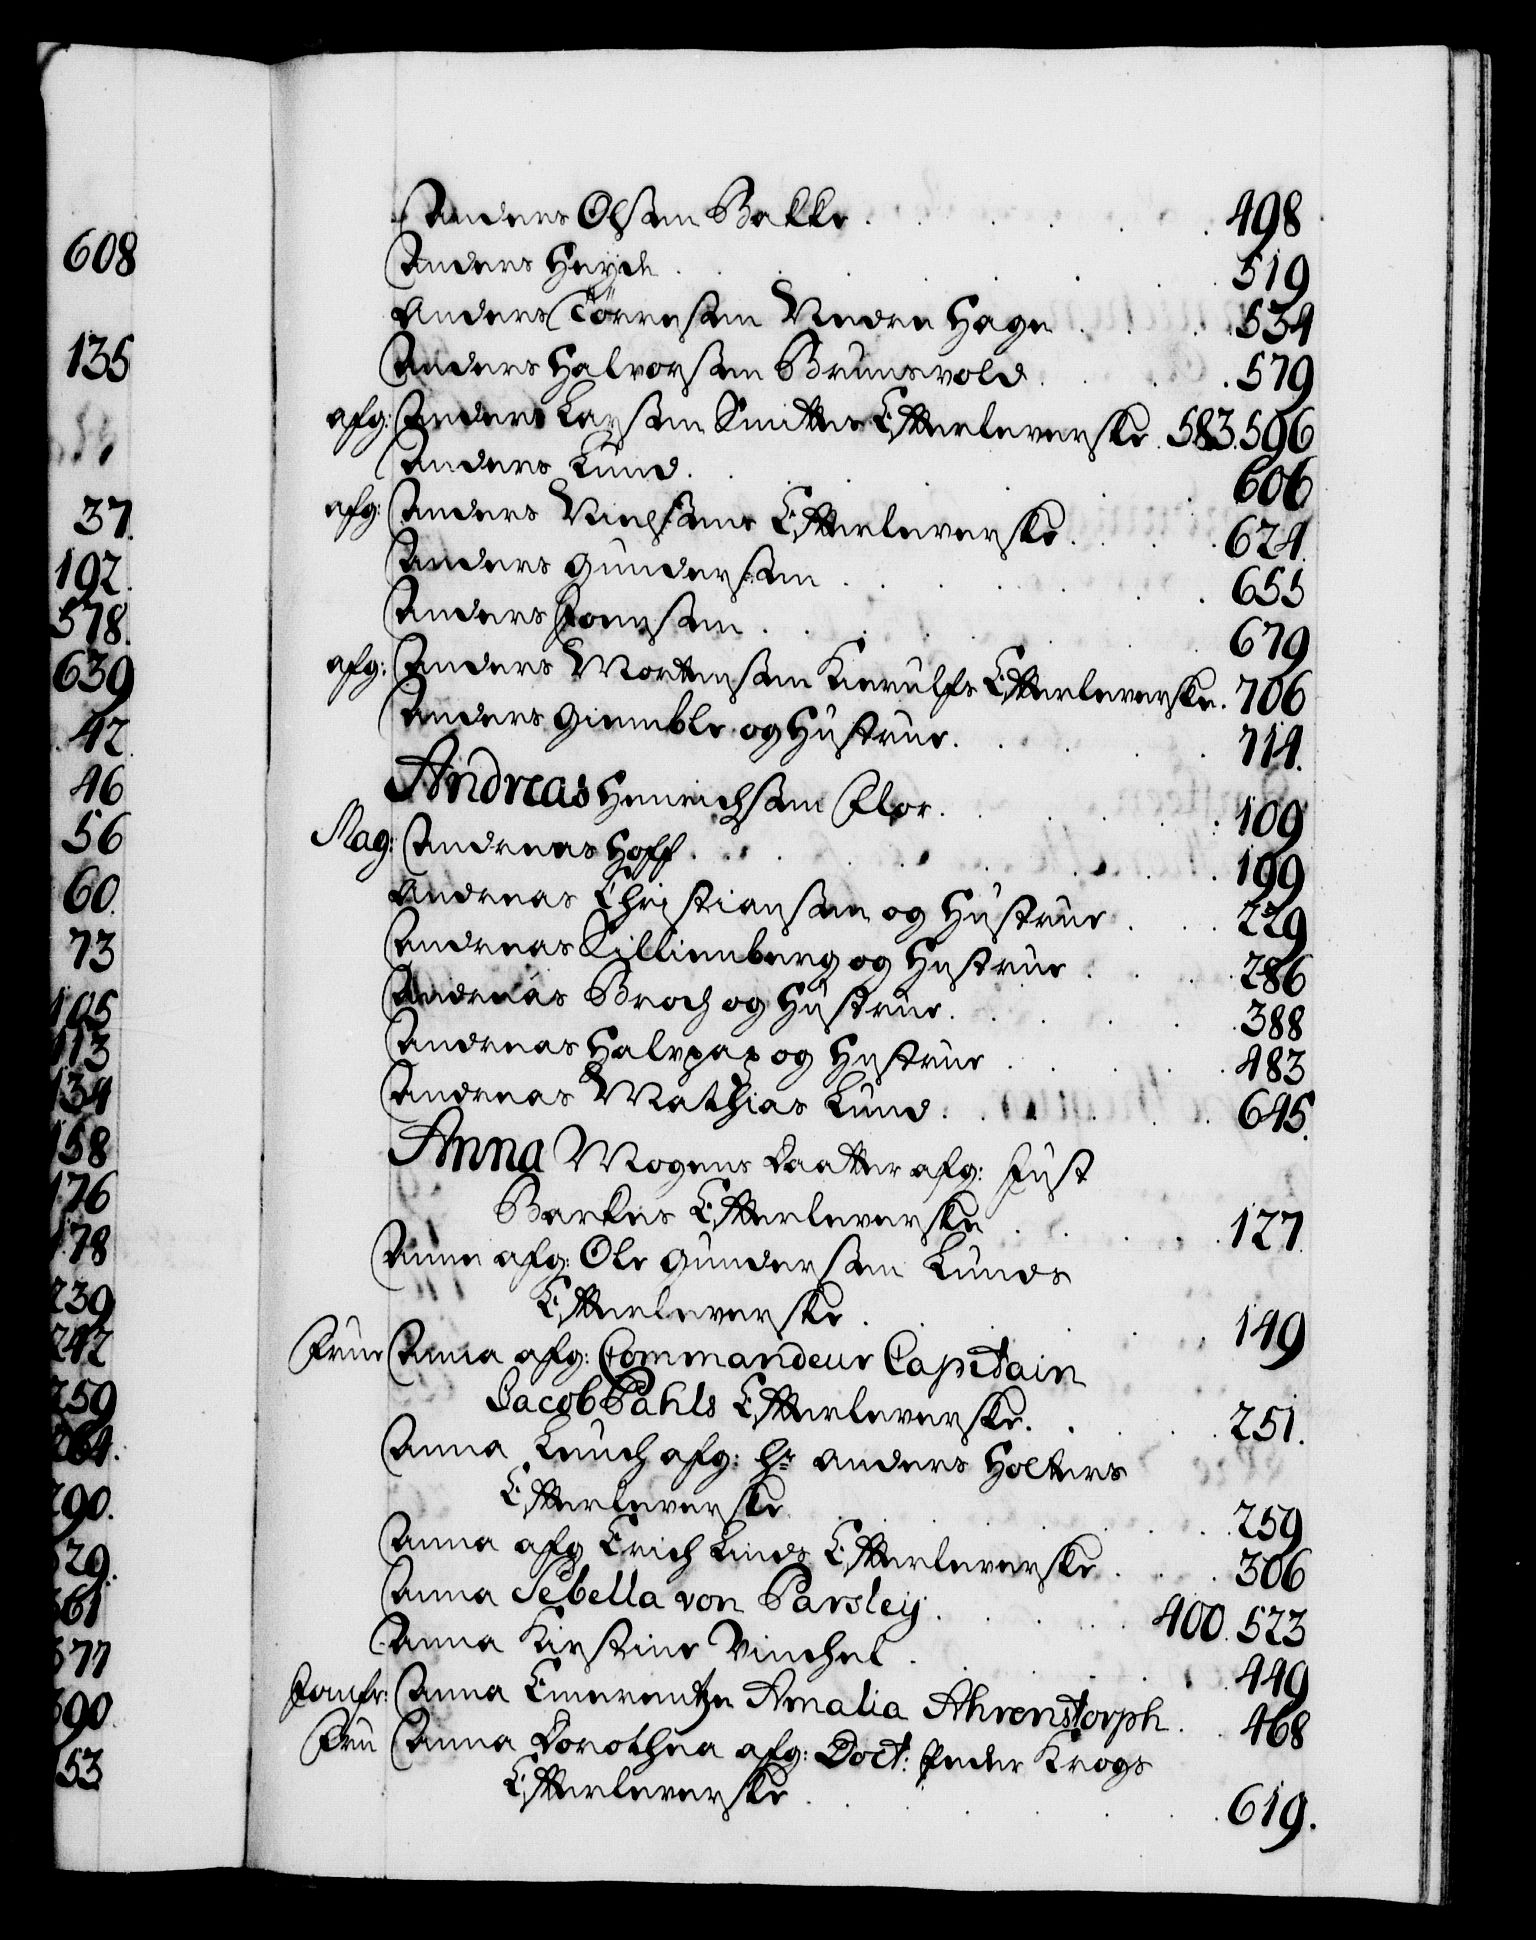 608
135
37.
192.
578.
639
42
46
56
60.
73
105
113
134
158
176
178
239
242
259
264.
290.
329.
361
377
390.
53
Anders Olsøn Bakke . . . . . 498
Anders Heyde . . . . . 519
Anders Törresøn Nedre Hage . . . 534
Anders Halvorsøn Brunsvold . . . 579
afg: Anders Larsøn Smittes Efterleverske. 583. 596
Anders Lund . . . . . 606
afg: Anders Nielsøns Efterleverske . . . 624.
Anders Gundersøn . . . . . 655
Anders Joensøn . . . . . 679
afg: Anders Mortensøn Kierulfs Efterleverske. 706
Anders Giemble og Hustrue . . . . 714.
Andreas Henrichsøn Flor . . . . 109
Mag: Andreas Hoff . . . . . 199
Andreas Christiansøn og Hustrue . . . 229
Andreas Lillienberg og Hustrue . . . 286
Andreas Broch og Hustrue . . . . 388
Andreas Halvpap og Hustrue . . . . 483
Andreas Mathias Lund . . . . 645.
Anna Mogens Daatter afg: Just
Barkes Efterleverske . . . . 127
Anne afg: Ole Gundersøn Lunds
Efterleverske . . . . . 149
Frue Anna afg: Commandeur Capitain
Jacob Pahls Efterleverske . . . . 251.
Anna Leuch afg: Hr Anders Holters
Efterleverske . . . . . 259
Anna afg Erich Linds Efterleverske . . . 306
Anna Sebella von Parsley . . . . 400. 523
Anna Kirstine Vinchel . . . . . 449
Jomfr: Anna Emerentze Amalia Ahrenstorph . . 468
Fru Anna Dorothea afg: Doct: Peder Krogs
Efterleverske . . . . . 619.